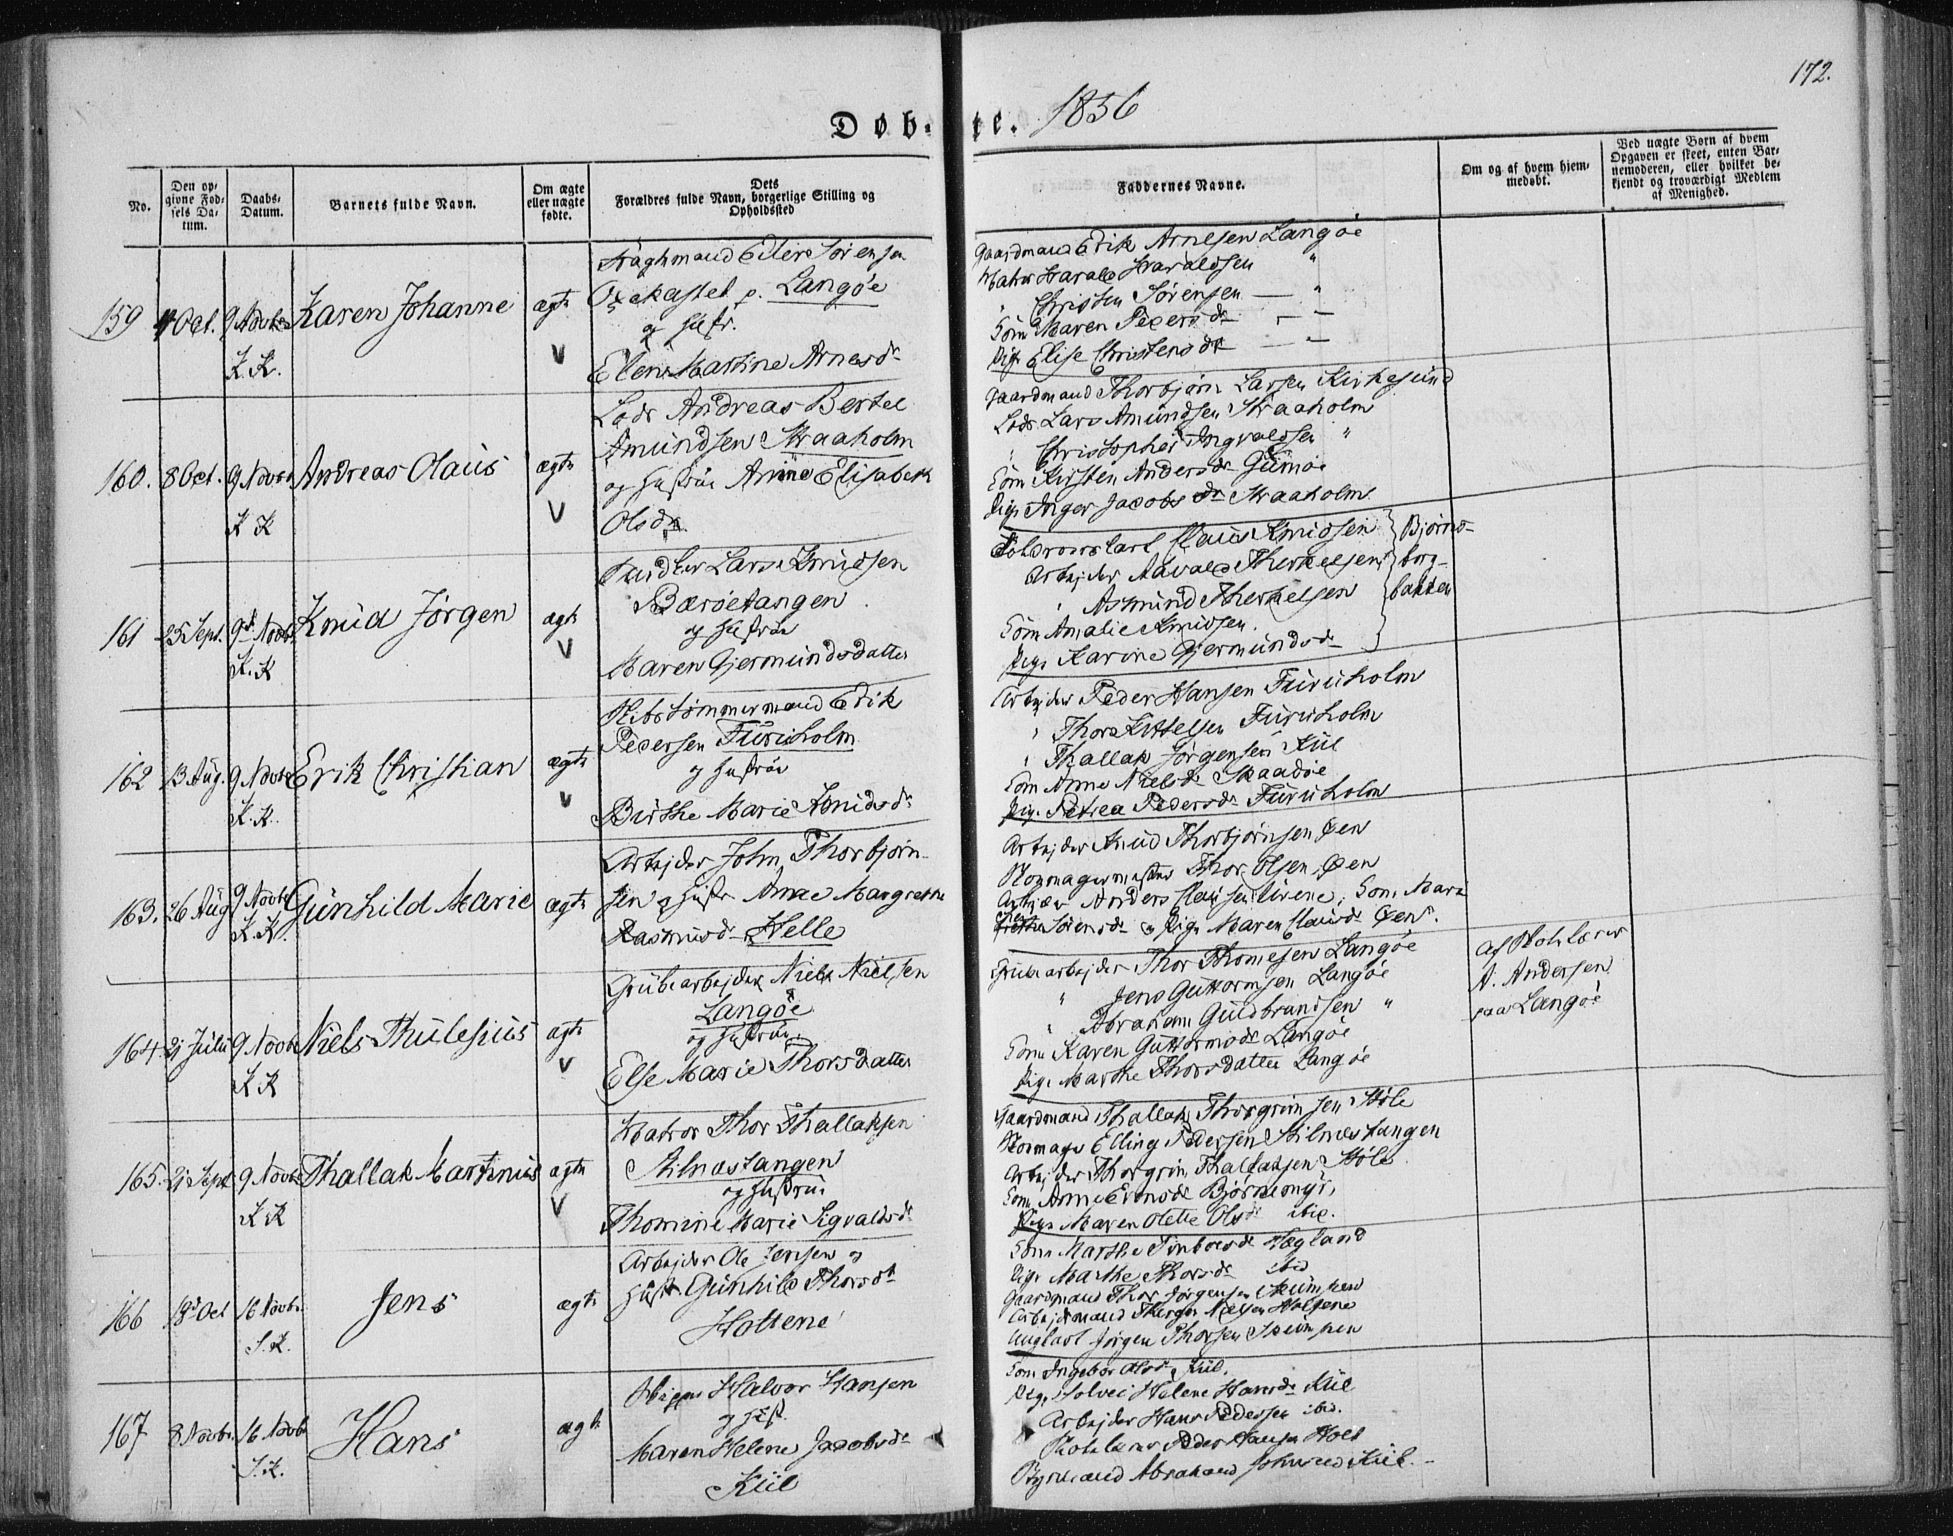 172.
Døbte. 1856
No.
Den opgivne Fødsels Datum.
Daabs-Datum.
Barnets fulde Navn.
Om ægte eller uægte fødte.
Dets Forældres fulde Navn, borgerlige Stilling og Opholdssted
Faddernes Navne.
Om og af hvem hjemmedøbt.
Ved uægte Børn af hvem Opgaven er skeet, enten Barnemoderen, eller hvilket bekjendt og troværdigt Medlem af Menighed.
159 4 Oct. 9 Novbr K.K. Karen Johanne ægte
Eilert Sørensen
p. Langøe
og Hustr.
Ellen Martine Arnesdr
Gaardmand Erik Arnesen Langøe
Matros Harald Haraldsen "
" Christen Sørensen — "
Kone Maren Peders dr " —
Pige Elise Christensdr — —
160. 8 Oct. 9 Novbr K K Andreas Olaus ægte
Lods Andreas Bertel
Amundsen Straaholm
og Hustrue Anne Elisabeth
Olsdr.
Gaardmand Thorbjørn Larsen Kirkesund
Lods Lars Amundsen Straaholm
" Christopher Ingvaldsen "
Kone Kirsten Andersdr Gumøe
Pige Inger Jacobs dr Straaholm
161 25 Sept. 9de Novbr K.K Knud Jørgen ægte
Lars Knudsen
Barøetangen
og Hustrue
Maren Gjermundsdatter
Claus Knudsen Bjørns-
Arbejder Aavald Therkelsen borg-
" Asmund Therkelsen bakken
Kone Amalie Knudsen.
Pige Karine Gjermundsdr
162 13 Aug. 9 Novbr K.K. Erik Christian ægte
Skibstømmermand Erik
Pedersen Furuholm
og Hustrue
Birthe Marie Knudsdr
Arbejder Peder Hansen Furuholm
" Thor Kittelsen Furuholm
" Thallak Jørgensen Kiil
Kone Anne Nielsdr Skaadøe
Pige Petrea Pedersdr Furuholm
163. 26 Aug 9 Novbr K.K. Gunhild Marie ægte
Arbejder John Thorbjørn-
sen og Hustr Anne Margrethe
Rasmusdr Helle
Arbejder Knud Thorbjørnsen Øen
Skomagermester Thor Olsen, Øen
Arbejder Anders Clausen; Kone Maria
Sørensdr og Pige Maren Clausdr Øen.
164 21 Julii 9 Novbr K K Niels Thulesius ægte
Grubearbejder Niels Nielsen
Langøe
og Hustrue
Else Marie Thorsdatter
Grubearbejder Thor Thomesen Langøe
" Jens Guttormsen Langøe
" Abraham Guldbrandsen "
Kone Karen Guttormsdr Langøe
Pige Marthe Thorsdatter Langøe
af Skolelærer
A. Andersen
paa Langøe
165. 21 Sept 9 Novbr K K Thallak Martinus ægte
Matros Thor Thallaksen
Stilnæstangen
og Hustrue
Thomine Marie Sigvaldsdr
Gaardmand Thallak Thorgrimsen Støle
Skomager Elling Pedersen Stilnæstangen
Arbejder Thorgrim Thallaksen Støle
Kone Anne Evensdr Bjørnemyr,
Pige Maren Olette Olsdr ibid.
166 18de Oct 16 Novbr. S.K. Jens ægte
Arbejder Ole Jensen og
Hustr Gunhild Thorsdr
Holtene
Kone Marthe Hægland
Pige Marthe Thorsdr ibid
Gaardmand Thor Jørgensen
Jørgen Thorsen
167 8 Novbr. 16 Novbr S.K. Hans ægte
Halvor Hansen
og Hust.
Maren Helene Jacobsdr
Kiil
Kone Ingebor Olsdr Kiil.
Pige Helene Hansdr Kiil
Arbejder Hans Pedersen ibid.
Skolelærer Peder Hansen Holt
Abraham Kiil.